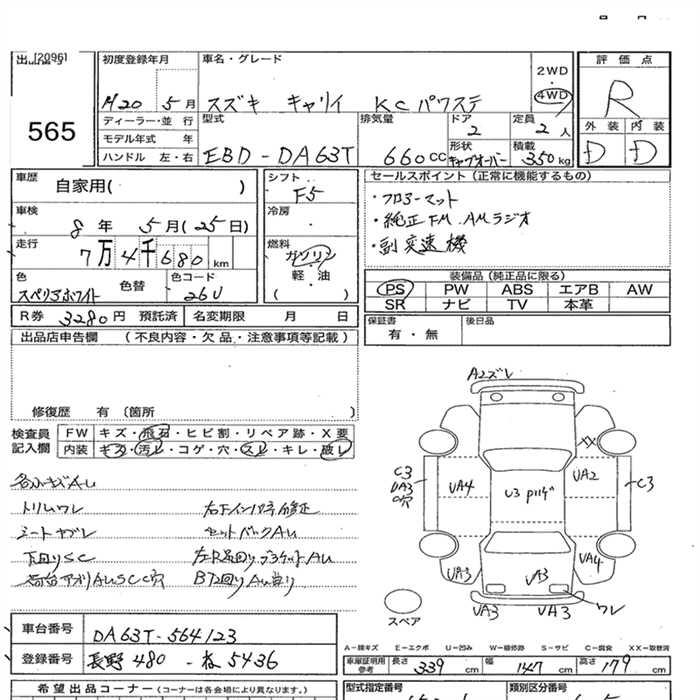 [2096]
出品番号
565
初度登録年月
H20 5月
ディーラー・並 行
モデル年式 年
ハンドル 左・右
車名・グレード
スズキ キャリイ KCパワステ
2WD
・
4WD
型式
EBD-DA63T
排気量
660CC
ドア
2
定員
2人
形状
キャブオーバー
積載
350kg
評価点
R
外装 内装
D D
車歴
自家用( )
車検
8年 5月(25日)
走行
7万4千680km
色
スペリアホワイト
色替
色コード
26U
シフト
F5
冷房
燃料
ガソリン
軽・油
( )
R券 3280円 預託済 名変期限 月 日
セールスポイント (正常に機能するもの)
・フロアーマット
・純正FM.AMラジオ
・副変速機
装備品 (純正品に限る)
PS PW ABS エアB AW
SR ナビ TV 本革
保証書
有・無
後日品
出品店申告欄 (不良内容・欠品・注意事項等記載)
修復歴 有 〔箇所 〕
検査員
記入欄
FW キズ・飛石・ヒビ割・リペア跡・X要
内装 キズ・汚レ・コゲ・穴・スレ・キレ・破レ
各小キズAU
トリムワレ
シートヤブレ
セットバックAU
下回りSC
荷台アオリAUSCC穴
A2ズレ
C3
UA3
C穴
UA4
U3
XX
UA2
C3
UA3
UA4
UA3
UA3
ワレ
スペア
車台番号 DA63T-564123
登録番号 長野480-
5436
A-線キズ E-エクボ U-凹み W-補修跡 S-サビ C-腐食 XX-交換済
車庫証明用
参考
長さ 339cm
幅 147cm
高さ 179cm
希望出品コーナー (コーナーは各会場により異なります)
型式指定番号
類別区分番号